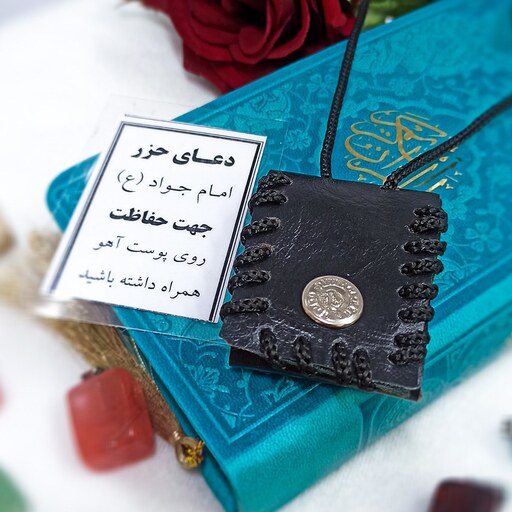 دعـــای حرز
امـام جـواد (ع)
جهت حفاظت
روی پوست آهو
همراه داشته باشید